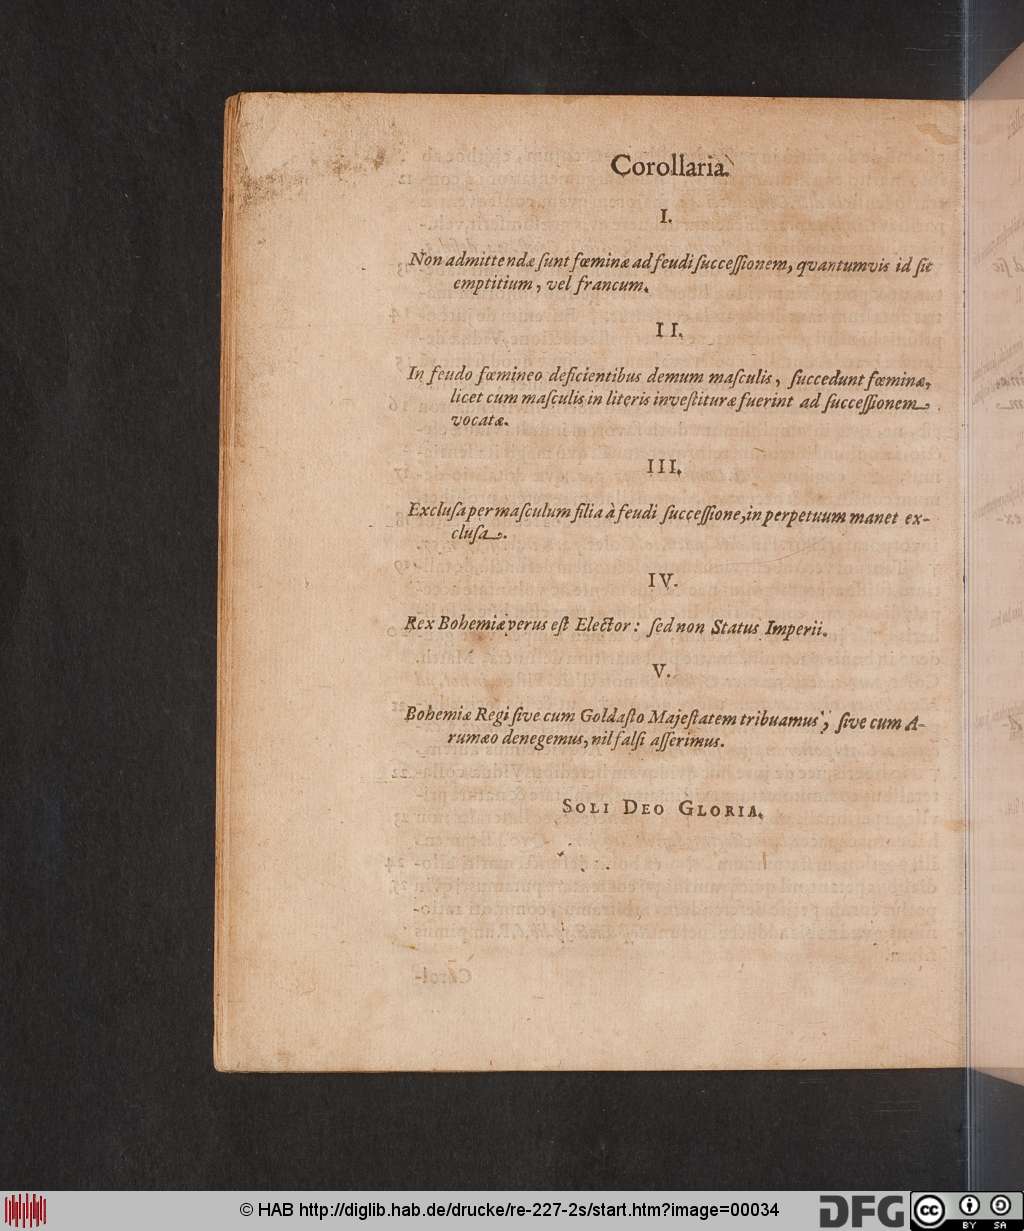 Corollaria.
I.
Non admittendæ ſunt fœminæ ad feudi ſucceſſionem, qvantumvis id ſit
emptitium, vel francum.
II.
In feudo fœmineo deficientibus demum maſculis, ſuccedunt fœminæ,
licet cum maſculis in literis inveſtituræ fuerint ad ſucceſſionem
vocatæ.
III.
Excluſa per maſculum filia à feudi ſucceſſione, in perpetuum manet ex-
cluſa.
IV.
Rex Bohemiæ verus eſt Elector: ſed non Status Imperii.
V.
Bohemiæ Regi ſive cum Goldaſto Majeſtatem tribuamus, ſive cum A-
rumæo denegemus, nil falſi aſſerimus.
SOLI DEO GLORIA.
© HAB http://diglib.hab.de/drucke/re-227-2s/start.htm?image=00034
DFG
cc BY SA